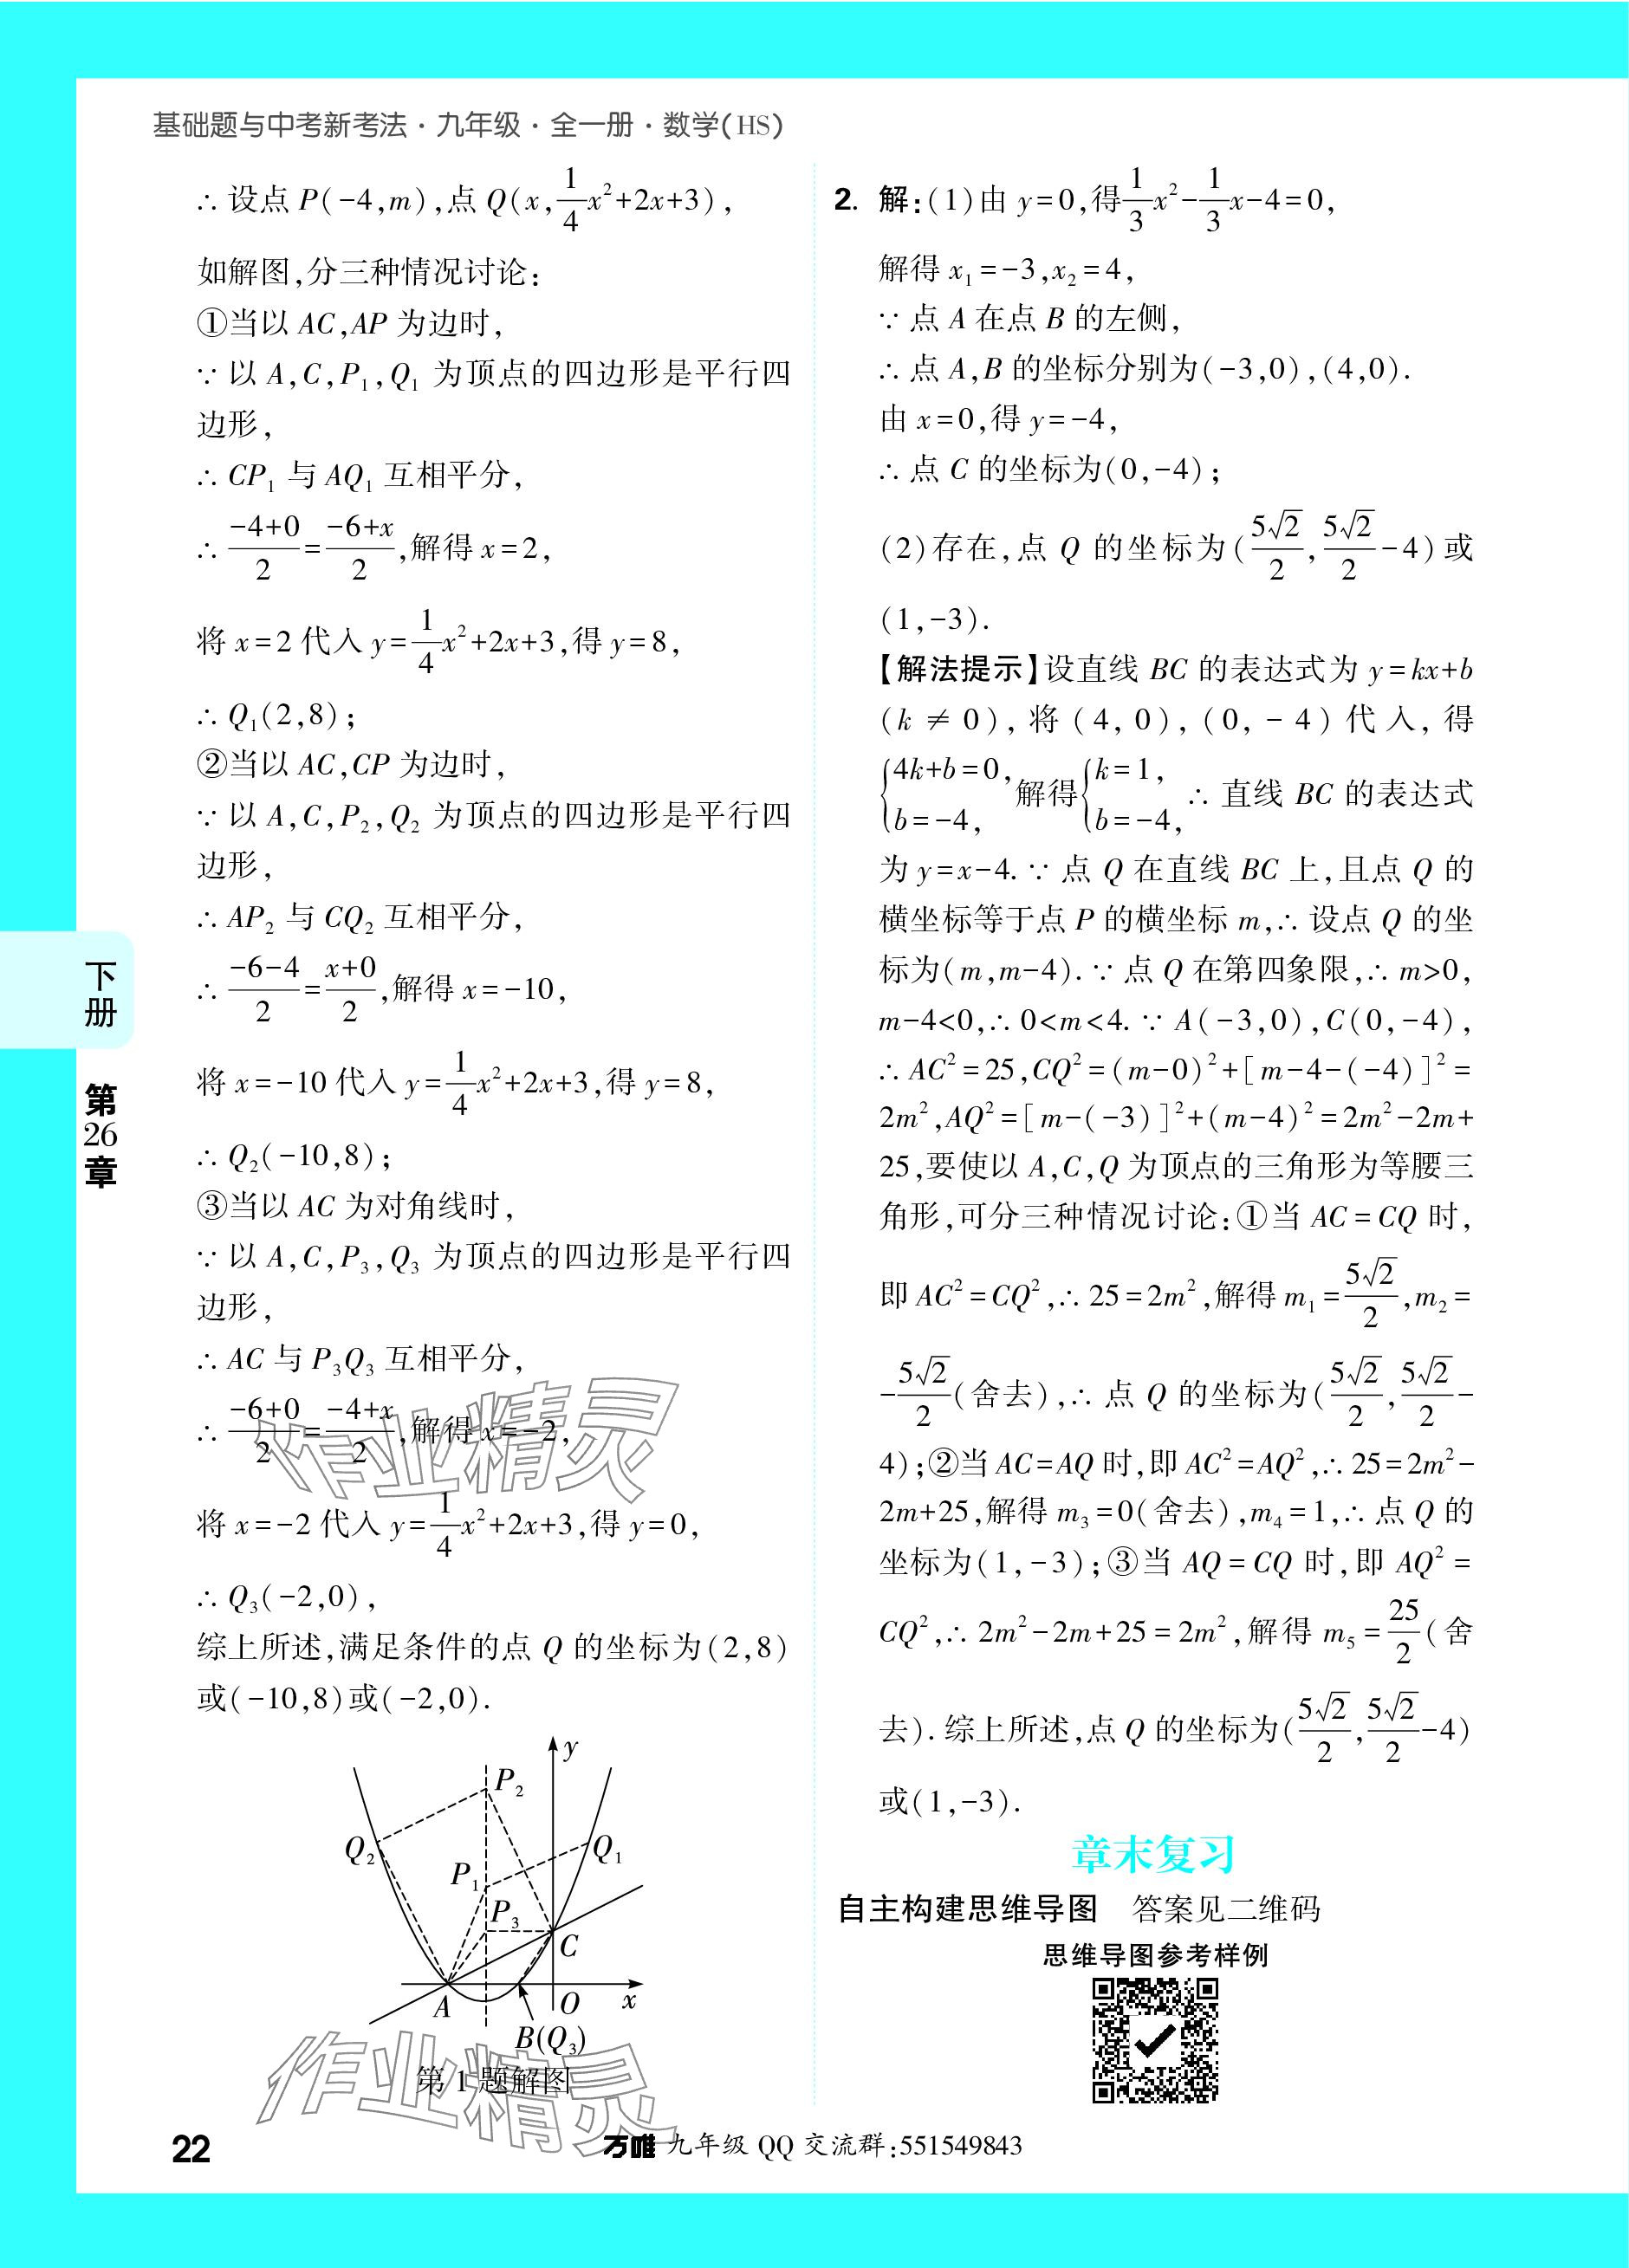 基础题与中考新考法·九年级·全一册·数学(HS)
∴ 设点 P(-4,m),点 Q(x,\frac{1}{4}x²+2x+3),
如解图,分三种情况讨论:
①当以 AC,AP 为边时,
∵ 以 A,C,P₁,Q₁ 为顶点的四边形是平行四
边形,
∴ CP₁ 与 AQ₁ 互相平分,
∴ \frac{-4+0}{2}=\frac{-6+x}{2},解得 x=2,
将 x=2 代入 y=\frac{1}{4}x²+2x+3,得 y=8,
∴ Q₁(2,8);
②当以 AC,CP 为边时,
∵ 以 A,C,P₂,Q₂ 为顶点的四边形是平行四
边形,
∴ AP₂ 与 CQ₂ 互相平分,
∴ \frac{-6-4}{2}=\frac{x+0}{2},解得 x=-10,
将 x=-10 代入 y=\frac{1}{4}x²+2x+3,得 y=8,
∴ Q₂(-10,8);
③当以 AC 为对角线时,
∵ 以 A,C,P₃,Q₃ 为顶点的四边形是平行四
边形,
∴ AC 与 P₃Q₃ 互相平分,
∴ \frac{-6+0}{2}=\frac{-4+x}{2},解得 x=-2,
将 x=-2 代入 y=\frac{1}{4}x²+2x+3,得 y=0,
∴ Q₃(-2,0),
综上所述,满足条件的点 Q 的坐标为(2,8)
或(-10,8)或(-2,0).
y
P₂
Q₂
Q₁
P₁
P₃
C
A
O
x
B(Q₃)
第 1 题解图
2. 解:(1)由 y=0,得\frac{1}{3}x²-\frac{1}{3}x-4=0,
解得 x₁=-3,x₂=4,
∵ 点 A 在点 B 的左侧,
∴ 点 A,B 的坐标分别为(-3,0),(4,0).
由 x=0,得 y=-4,
∴ 点 C 的坐标为(0,-4);
(2)存在,点 Q 的坐标为(\frac{5√2}{2},\frac{5√2}{2}-4)或
(1,-3).
【解法提示】设直线 BC 的表达式为 y=kx+b
(k≠0),将(4,0),(0,-4)代入,得
{4k+b=0, b=-4, 解得{k=1, b=-4, ∴ 直线 BC 的表达式
为 y=x-4. ∵ 点 Q 在直线 BC 上,且点 Q 的
横坐标等于点 P 的横坐标 m,∴ 设点 Q 的坐
标为(m,m-4). ∵ 点 Q 在第四象限,∴ m>0,
m-4<0,∴ 0<m<4. ∵ A(-3,0),C(0,-4),
∴ AC²=25,CQ²=(m-0)²+[m-4-(-4)]²=
2m²,AQ²=[m-(-3)]²+(m-4)²=2m²-2m+
25,要使以 A,C,Q 为顶点的三角形为等腰三
角形,可分三种情况讨论:①当 AC=CQ 时,
即 AC²=CQ²,∴ 25=2m²,解得 m₁=\frac{5√2}{2},m₂=
-\frac{5√2}{2}(舍去),∴ 点 Q 的坐标为(\frac{5√2}{2},\frac{5√2}{2}-
4);②当 AC=AQ 时,即 AC²=AQ²,∴ 25=2m²-
2m+25,解得 m₃=0(舍去),m₄=1,∴ 点 Q 的
坐标为(1,-3);③当 AQ=CQ 时,即 AQ²=
CQ²,∴ 2m²-2m+25=2m²,解得 m₅=\frac{25}{2}(舍
去). 综上所述,点 Q 的坐标为(\frac{5√2}{2},\frac{5√2}{2}-4)
或(1,-3).
章末复习
自主构建思维导图 答案见二维码
思维导图参考样例
下册
第26章
作业精灵
作业精灵
22
万唯 九年级 QQ 交流群:551549843